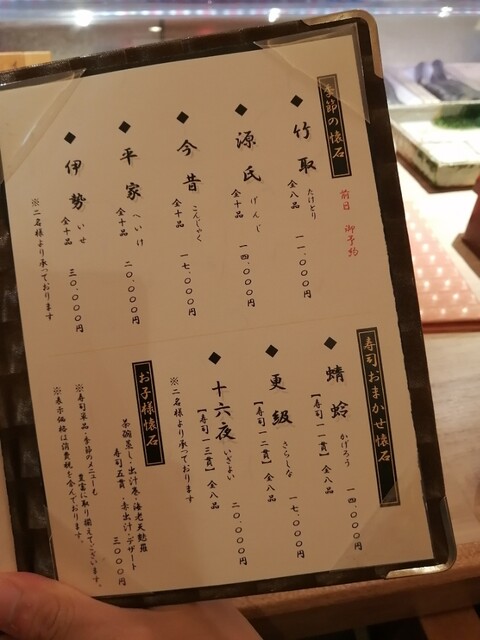 季節の懐石
前日 御予約
◆竹取 たけとり 全八品 一一、〇〇〇円
◆源氏 げんじ 全十品 一四、〇〇〇円
◆今昔 こんじゃく 全十品 一七、〇〇〇円
◆平家 へいけ 全十品 二〇、〇〇〇円
◆伊勢 いせ 全十品 三〇、〇〇〇円
※二名様より承っております
寿司おまかせ懐石
◆蜻蛉 かげろう 【寿司一一貫】全八品 一四、〇〇〇円
◆更級 さらしな 【寿司一二貫】全八品 一七、〇〇〇円
◆十六夜 いざよい 【寿司一三貫】全八品 二〇、〇〇〇円
※二名様より承っております
お子様懐石
茶碗蒸し・出汁巻・海老天麩羅
寿司五貫・赤出汁・デザート
三〇〇〇円
※寿司単品・季節のメニューも
豊富に取り揃えてございます。
※表示価格は消費税を含んでおります。